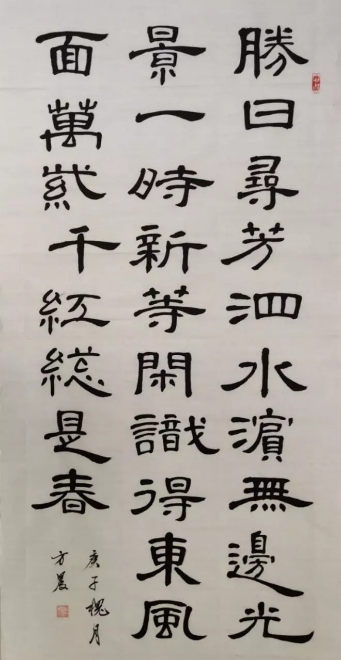 勝日尋芳泗水濱無邊光
景一時新等閑識得東風
面萬紫千紅總是春
庚子槐月
方晨